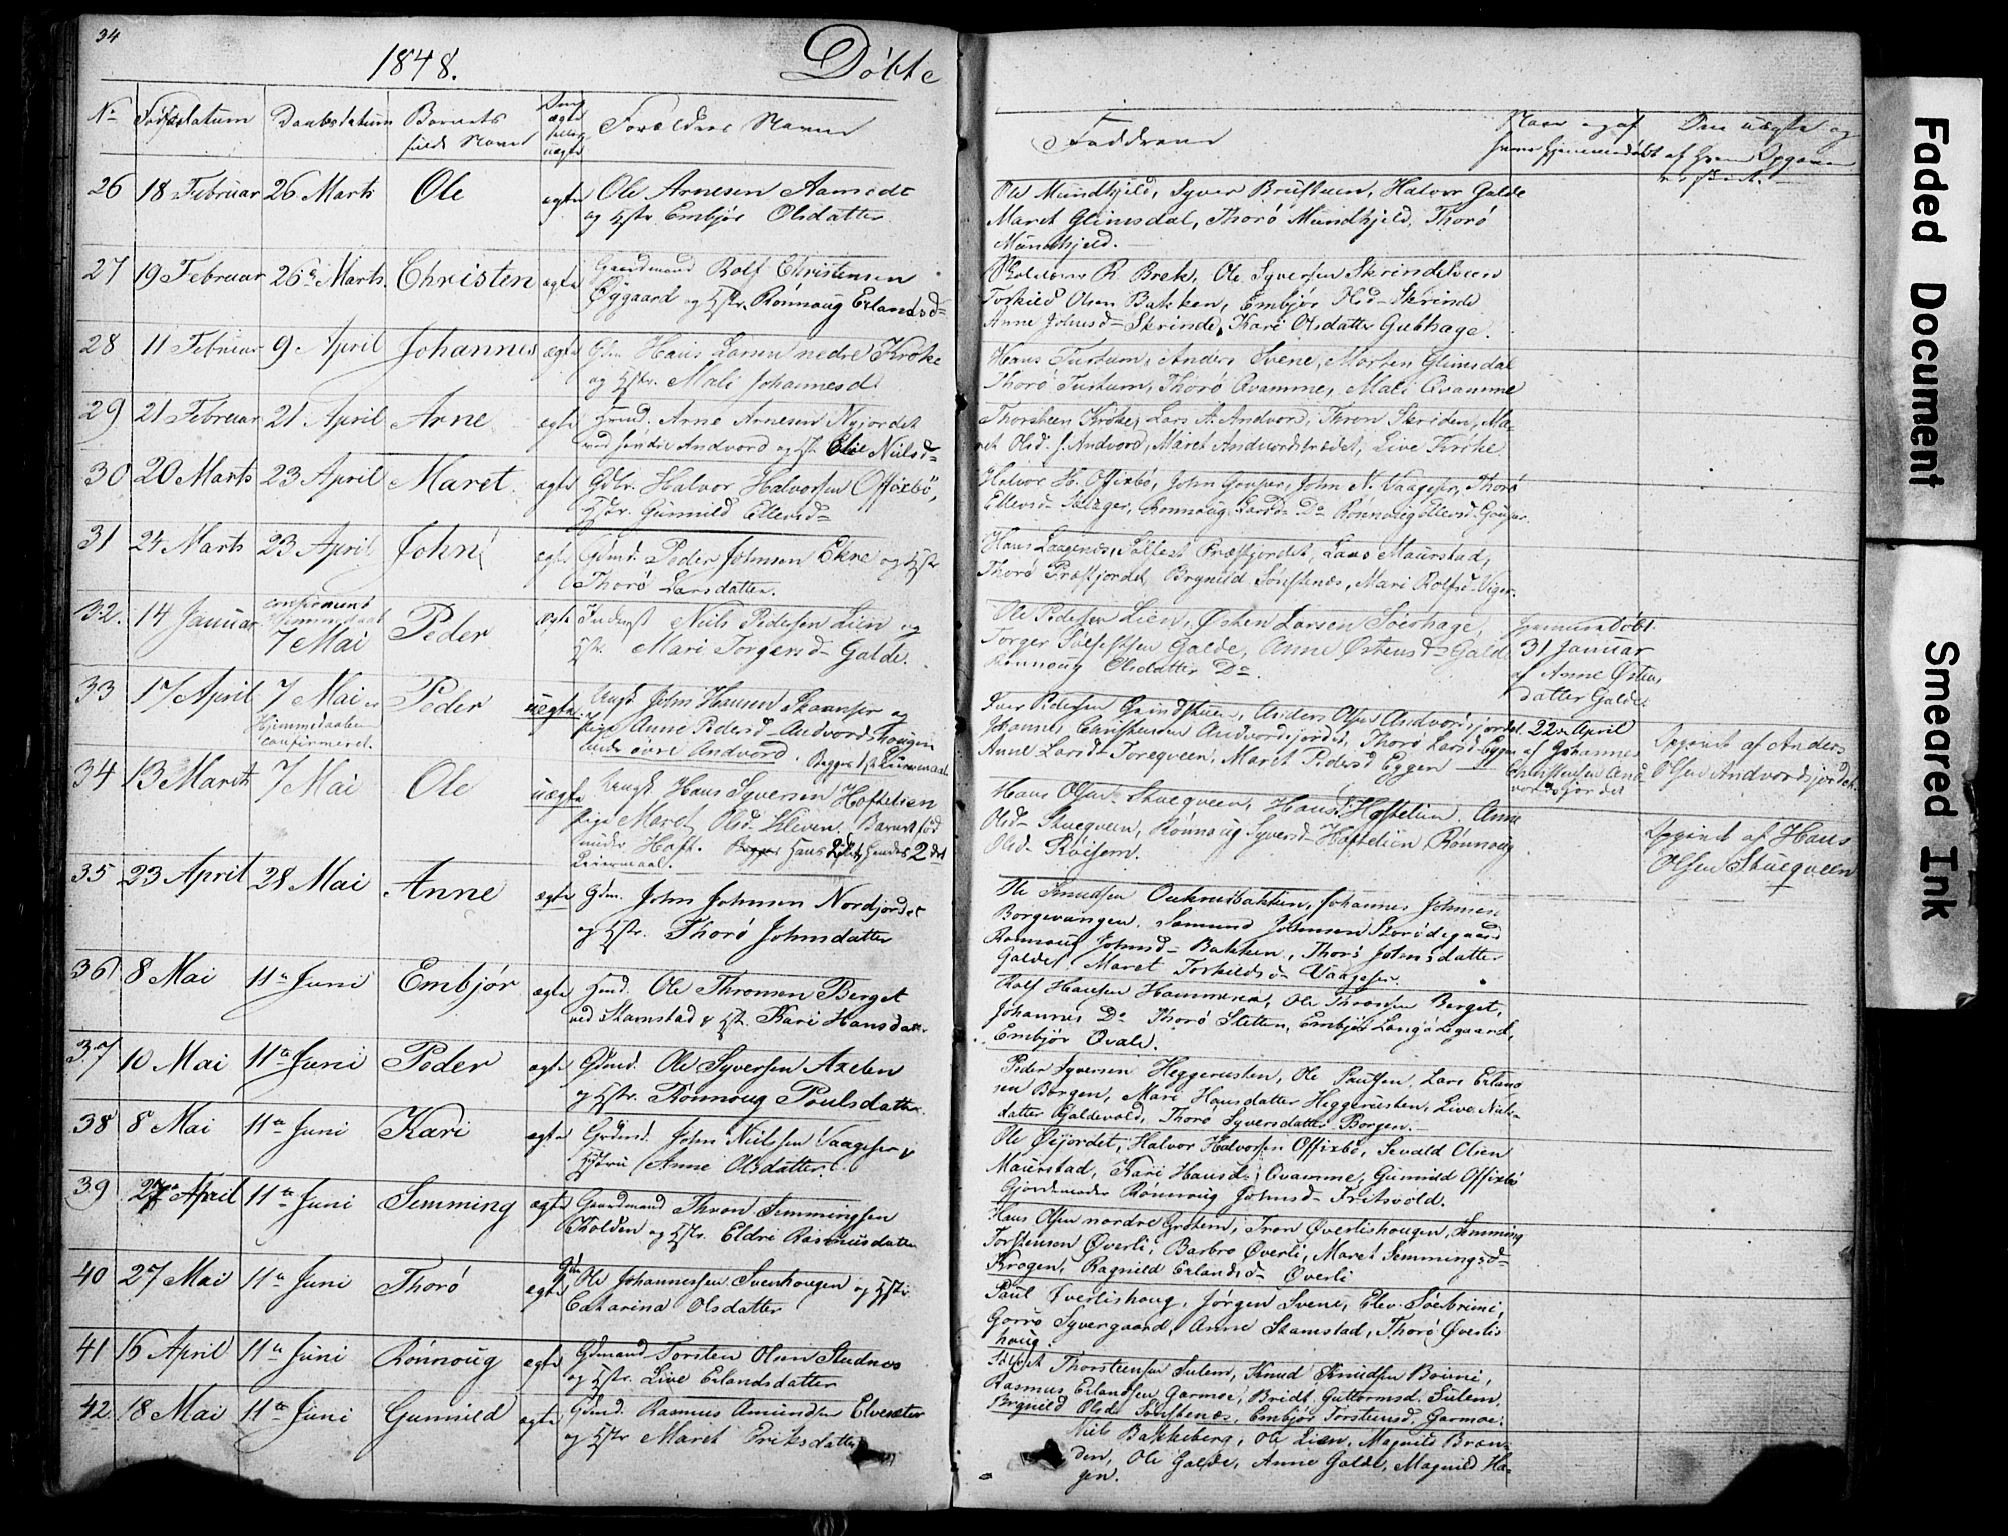 34
1848. Døbte
No Fødselsdatum Daabsdatum Barnets fulde Navn Om ægte eller uægte Forældres Navne Faddrene Naar og af hvem hjemmedøbt Den uægte og af hvem Opgiven
26 18 Februar 26 Marts Ole ægte Ole Arnesen Aamodt
og Hstr. Embjør Olsdatter.
Ole Mundhjeld, Syver Brustuen, Halvor Galde
Maret Glimsdal, Thorø Mundhjeld, Thorø
Mundhjeld.
27 19 Februar 26de Marts Christen ægte Gaardmand Rolf Christensen
Øygaard og Hstr. Rønnoug Erlandsd=
R. Brek, Ole Syversen Skrindstuen
Torkild Olsen Bakken, Embjør Olsd- Skrinde
Anne Johnsd- Skrinde, Kari Olsdatter Gubhage.
28 11 Februar 9 April Johannes ægte Gdm. Hans Larsen nedre Krøke
og Hstr. Mali Johannesd.
Hans Turtum, Anders Svene, Morten Glimsdal
Thorø Turtum, Thorø Qvamme, Mali Qvamme
29 21 Februar 21 April Arne ægte Hmd. Arne Arnesen Nyjordet
Andvord og Hstr. Nielsd=
Thorsteen Krøke, Lars A. Andvord, Thron Skriden, Ma-
ret Olsd. Andvord, Maret Andvordstrædet, Live Kirke
30 20 Marts 23 April Maret ægte Gdbr. Halvor Halvorsen Offixbø,
Hstr. Gunnild Ellevsd=
Halvor H. Offixbø, John Gouper, John N. Vaageser, Thorø
Ellevsd- Rønnoug Larsd- Do Rønnoug Ellevsd. Gouper.
31 24 Marts 23 April John ægte Gdmd. Peder Johnsen Ekre og Hstr
Thorø Larsdatter.
Hans Præstjordet, Lars Maurstad,
Thorø Præstjordet, Brynild Sønstenæs, Mari Rolfsd. Viger.
32. 14 Januar confirmeret Hjemmedaab
7 Mai Peder ægte Inderst Niels Pedersen Lien og
Hstr. Mari Torgersd- Galde.
Ole Pedersen Lien, Østen Larsen Soerhage,
Torger Galde, Anne Østensd- Galde
Rønnoug Olsdatter Do
Hjemmedøbt
31 Januar
af Anne Østens
datter Galde
33 17 April 7 Mai er
Hjemmedaaben
confirmeret. Peder uægte Ungk. John Hansen og
Pige Anne Pedersd- Andvordshougen
under øvre Andvord. Begges 1ste Leiermaal
Iver Pedersen Grindstuen, Anders Olsen Andvordsjordet
Johannes Christensen Andvordsjordet, Thorø Larsd- Eggen
Anne Larsdt- Torequeen, Maret Pedersd Eggen
22de April
af Johannes
Christensen And
vordsjordet
Opgivet af Anders
Olsen Andvordsjordet.
34 13 Marts 7 Mai Ole uægte Ungk. Hans Syversen Hoftelien
Pige Maret Olsd- Kleven. Barnet fød
under Hoft. Hans hendes 2det
Leiermaal.
Hans Olsen Stueqveen, Hans Hoftelien, Anne
Olsd- Stueqveen, Rønnoug Syversd- Hoftelien Rønnoug
Olsd- Røisem.
Opgivet af Hans
Olsen Stueqveen
35 23 April 28 Mai Anne ægte Gdm. John Johnsen Nordjordet
og Hstr. Thorø Johnsdatter
Ole Knudsen Johannes Johnsen
Borgevangen, Samund Johnsen Storødegaard
Rønnoug Johnsd- Bakken, Thorø Johnsdatter
Galde, Maret Torkildsd- Vaageser.
36 8 Mai 11te Juni Embjør ægte Hmd. Ole Thronsen Berget
ved Stamstad & Hstr. Kari Hansdatter
Rolf Hansen Hammeren, Ole Thronsen Berget,
Johannes Do Thorø Sletten, Embjør Langødegaard,
Embjør Qvale.
37 10 Mai 11te Juni Peder ægte Gdmd. Ole Syversen Axelen
og Hstr. Rønnoug Poulsdatter.
Peder Syversen Heggerusten, Ole Paulsen, Lars Erland
sen Borgen, Mari Hansdatter Heggerusten, Live Niels-
datter Galdevold, Thorø Syversdatter Borgen.
38 8 Mai 11te Juni Kari ægte Grdmd. John Nielsen Vaageser &
Hstru Anne Olsdatter.
Ole Øijordet, Halvor Halvorsen Offixbø, Sevald Olsen
Maurstad, Kari Hansd= Qvamme, Gunnild Offixbø
Gjordemoder Rønnoug Johnsd- Fritsvold.
39 27de April 11te Juni Semming ægte Gaardmand Thron Semmingsen
Skolden og Hstr. Eldri Rasmusdatter
Hans Olsen nordre Grotem, Tron Øverlishougen, Semming
Torstensen Øverli, Barbro Øverli, Maret Semmingsd-
Krogen, Ragnild Erlandsd- Øverli
40 27 Mai 11te Juni Thorø ægte Gdm Ole Johannessen Svenhougen og Hstr.
Catarina Olsdatter
Paul Øverlishoug, Jørgen Svene, Elev Søerbrimi,
Gorrø Syvergaard, Anne Stamstad, Thorø Øverlis
houg.
41 16 April 11te Juni Rønnoug ægte Gdmand Torsten Olsen Studnes
og Hstr. Live Erlandsdatter
Thorsteensen Sulem, Knud Knudsen Boivni,
Rasmus Erlandsen Garmoe, Bridt Guttormsd. Sulem,
Brynild Olsdt Sønstenæs, Embjør Torstensd. Garmoe.
42 18 Mai 11te Juni Gunnild ægte Gdmd. Rasmus Amundsen Elvesæter
og Hstr Maret Eriksdatter
Niels Bakkeberg, Ole Lien, Magnild Bræn-
den, Ole Galde, Anne Galde, Magnild Ha-
gen.
Faded Document
Smeared Ink